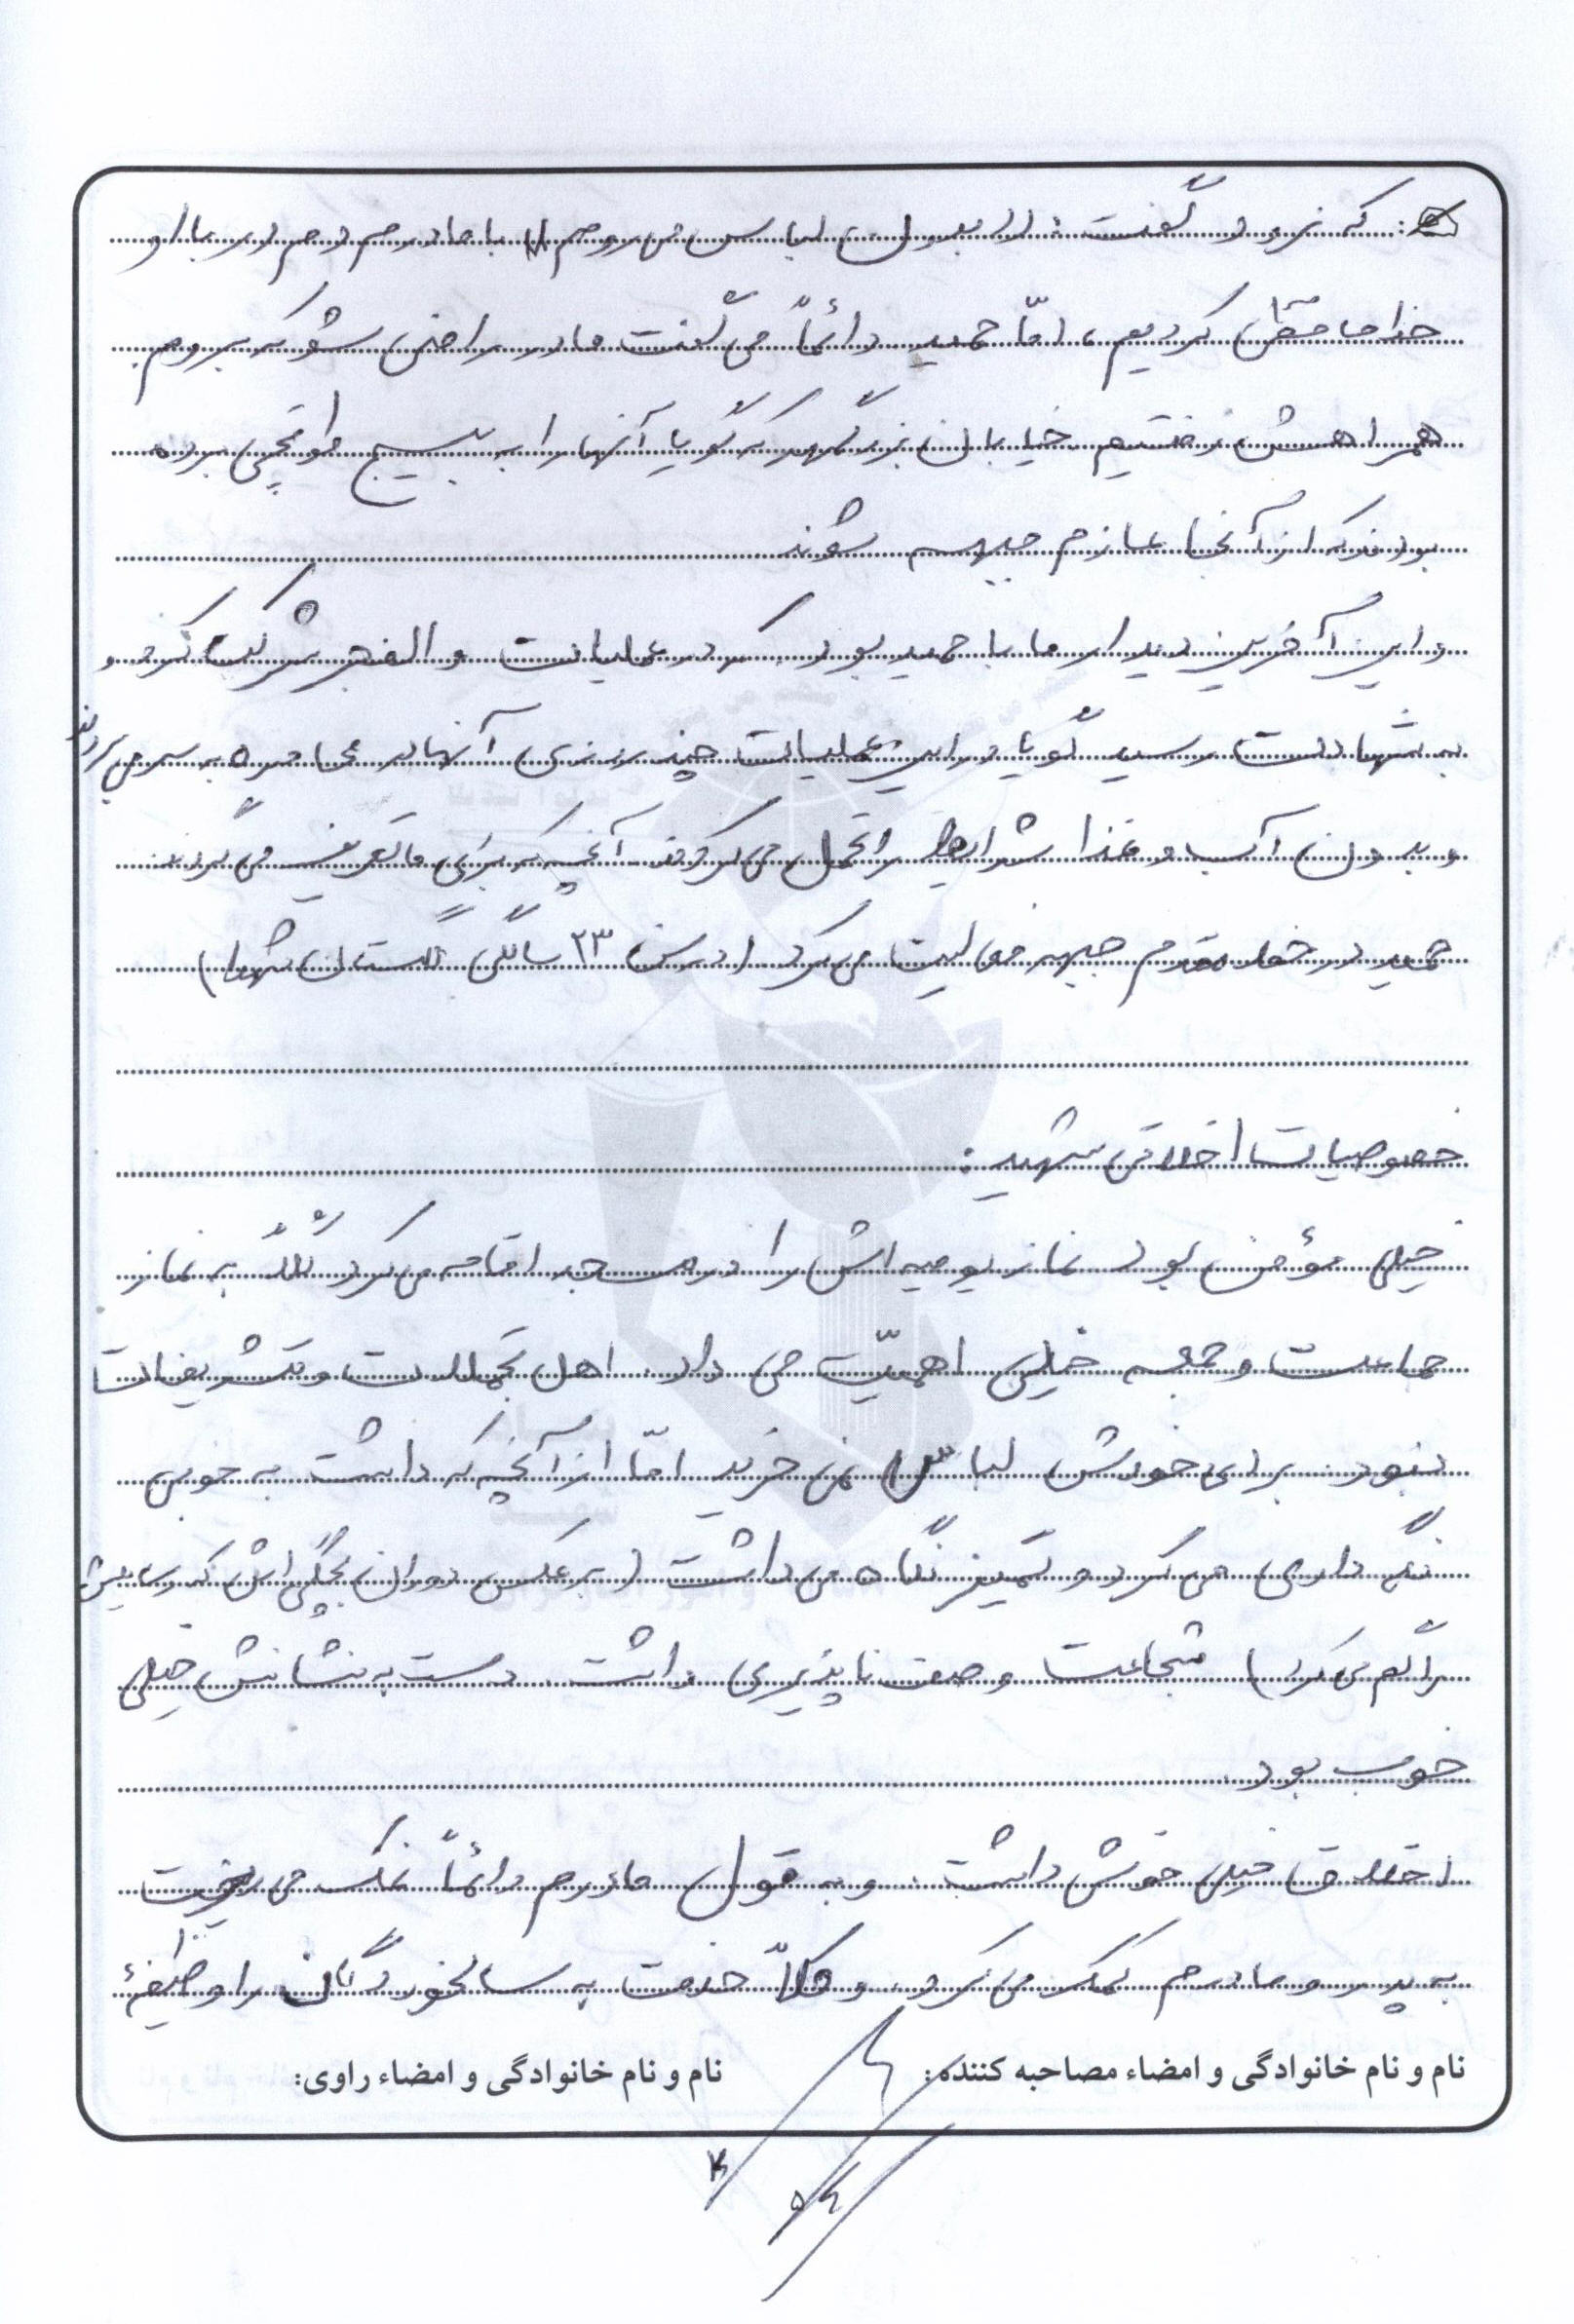 که نرود گفت: بدون لباس می روم با مادرم دم در با او
خداحافظی کردیم، امّا حمید دائماً می گفت مادر راضی شو که بروم
همراهش رفتیم خیابان بزرگمهر که گویا آنها را به بسیج برده
بودند که از آنجا عازم جبهه شوند
و این آخرین دیدار ما با حمید بود که در عملیات والفجر شرکت کرد و
به شهادت رسید گویا در این عملیات چند روزی آنها در محاصره به سر می بردند
و بدون آب و غذا شرایط را تحمل می کردند آنچه که برای ما تعریف می کردند
حمید در خط مقدم جبهه فعالیت می کرد (در سن ۲۳ سالگی گلستان شهدا)
خصوصیات اخلاقی شهید:
خیلی مؤمن بود نماز یومیه اش را در مسجد اقامه می کرد کلاً به نماز
جماعت و جمعه خیلی اهمیّت می داد. اهل تجملات و تشریفات
نبود. برای خودش لباس نمی خرید امّا از آنچه که داشت به خوبی
نگه داری می کرد و تمیز نگاه می داشت (برعکس دوران بچگی اش که وسایلش
را گم می کرد) شجاعت وصف ناپذیری داشت. دست به نشانش خیلی
خوب بود.
اخلاق خیلی خوش داشت. و به قول مادرم دائماً نمک می ریخت
به پدر و مادرم کمک می کرد. و کلاً خدمت به سالخوردگان را وظیفهٔ
نام و نام خانوادگی و امضاء مصاحبه کننده: نام و نام خانوادگی و امضاء راوی: